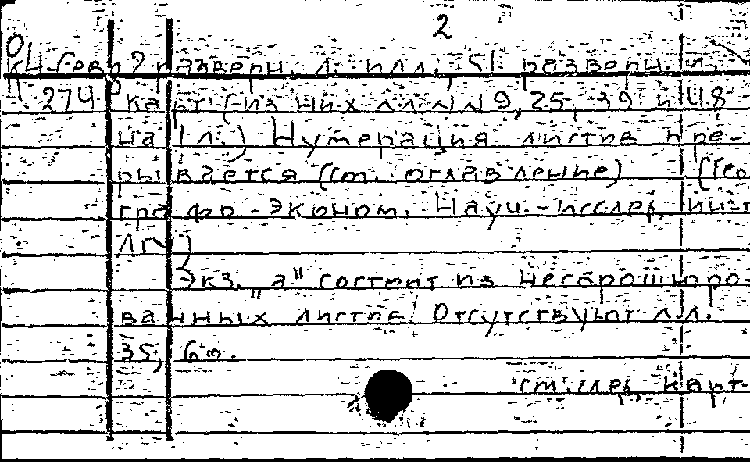 2
К4-Геогр 2 разверн. л. илл., 51 разверн. л.
274 карт (из них л.л. 9, 25, 39 и 48
на 1 л.) Нумерация листов пре-
рывается (см. оглавление) (Гео
графо-эконом. Науч.-исслед. ин-т
ЛГУ)
Экз. „а" состоит из несброшюро-
ванных листов. Отсутствуют л.л.
35, 60.
см. след. карт.